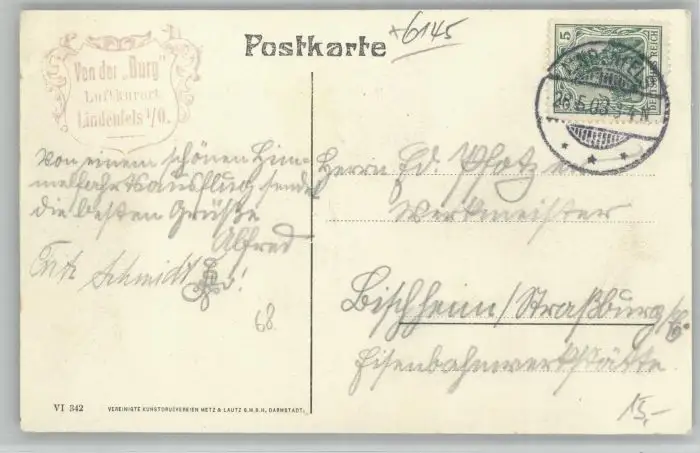 *6145
Postkarte
Von der „Burg"
Luftkurort
Lindenfels i/O.
5
DEUTSCHES REICH
LINDENFELS
28.5.08.
Von einem schönen Him-
melfahrtsausflug sendet
die besten Grüße
Alfred
Fritz Schmidt
Herrn Ed. Pfotzer
Werkmeister
Bischheim/Straßburg
Eisenbahnwerkstätte.
68
15,-
VI 342
VEREINIGTE KUNSTDRUCKEREIEN METZ & LAUTZ G.M.B.H., DARMSTADT.